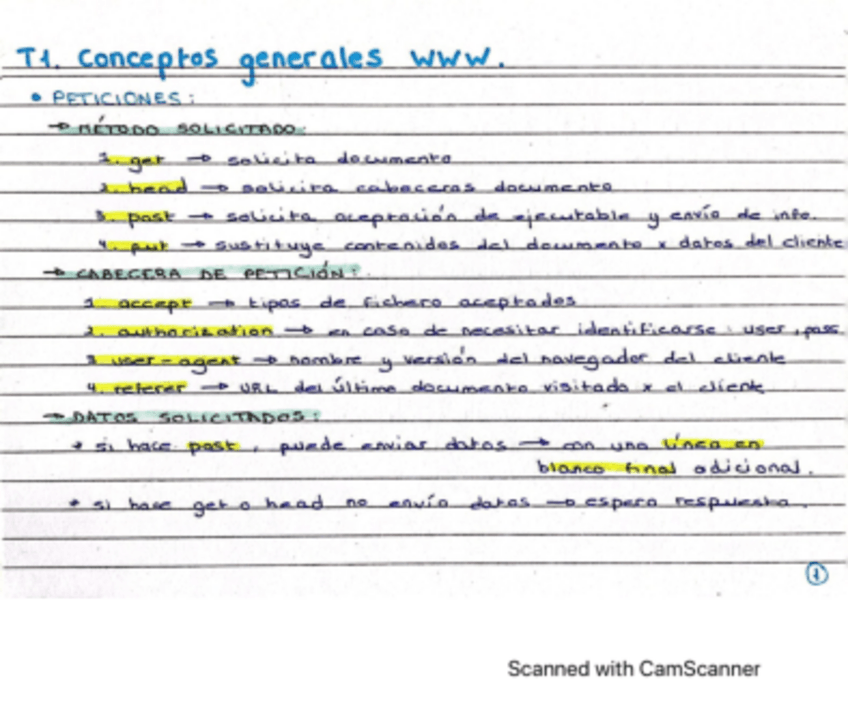 T1. Conceptos generales WWW.
• PETICIONES:
→ MÉTODO SOLICITADO:
1. get → solicita documento
2. head → solicita cabeceras documento
3. post → solicita aceptación de ejecutable y envío de info.
4. put → sustituye contenidos del documento x datos del cliente
→ CABECERA DE PETICIÓN:
1. accept → tipos de fichero aceptados
2. authorization → en caso de necesitar identificarse: user, pass
3. user-agent → nombre y versión del navegador del cliente
4. referer → URL del último documento visitado x el cliente
→ DATOS SOLICITADOS:
* si hace post, puede enviar datos → con una línea en
blanco final adicional.
* si hace get o head no envío datos → espera respuesta.
1
Scanned with CamScanner